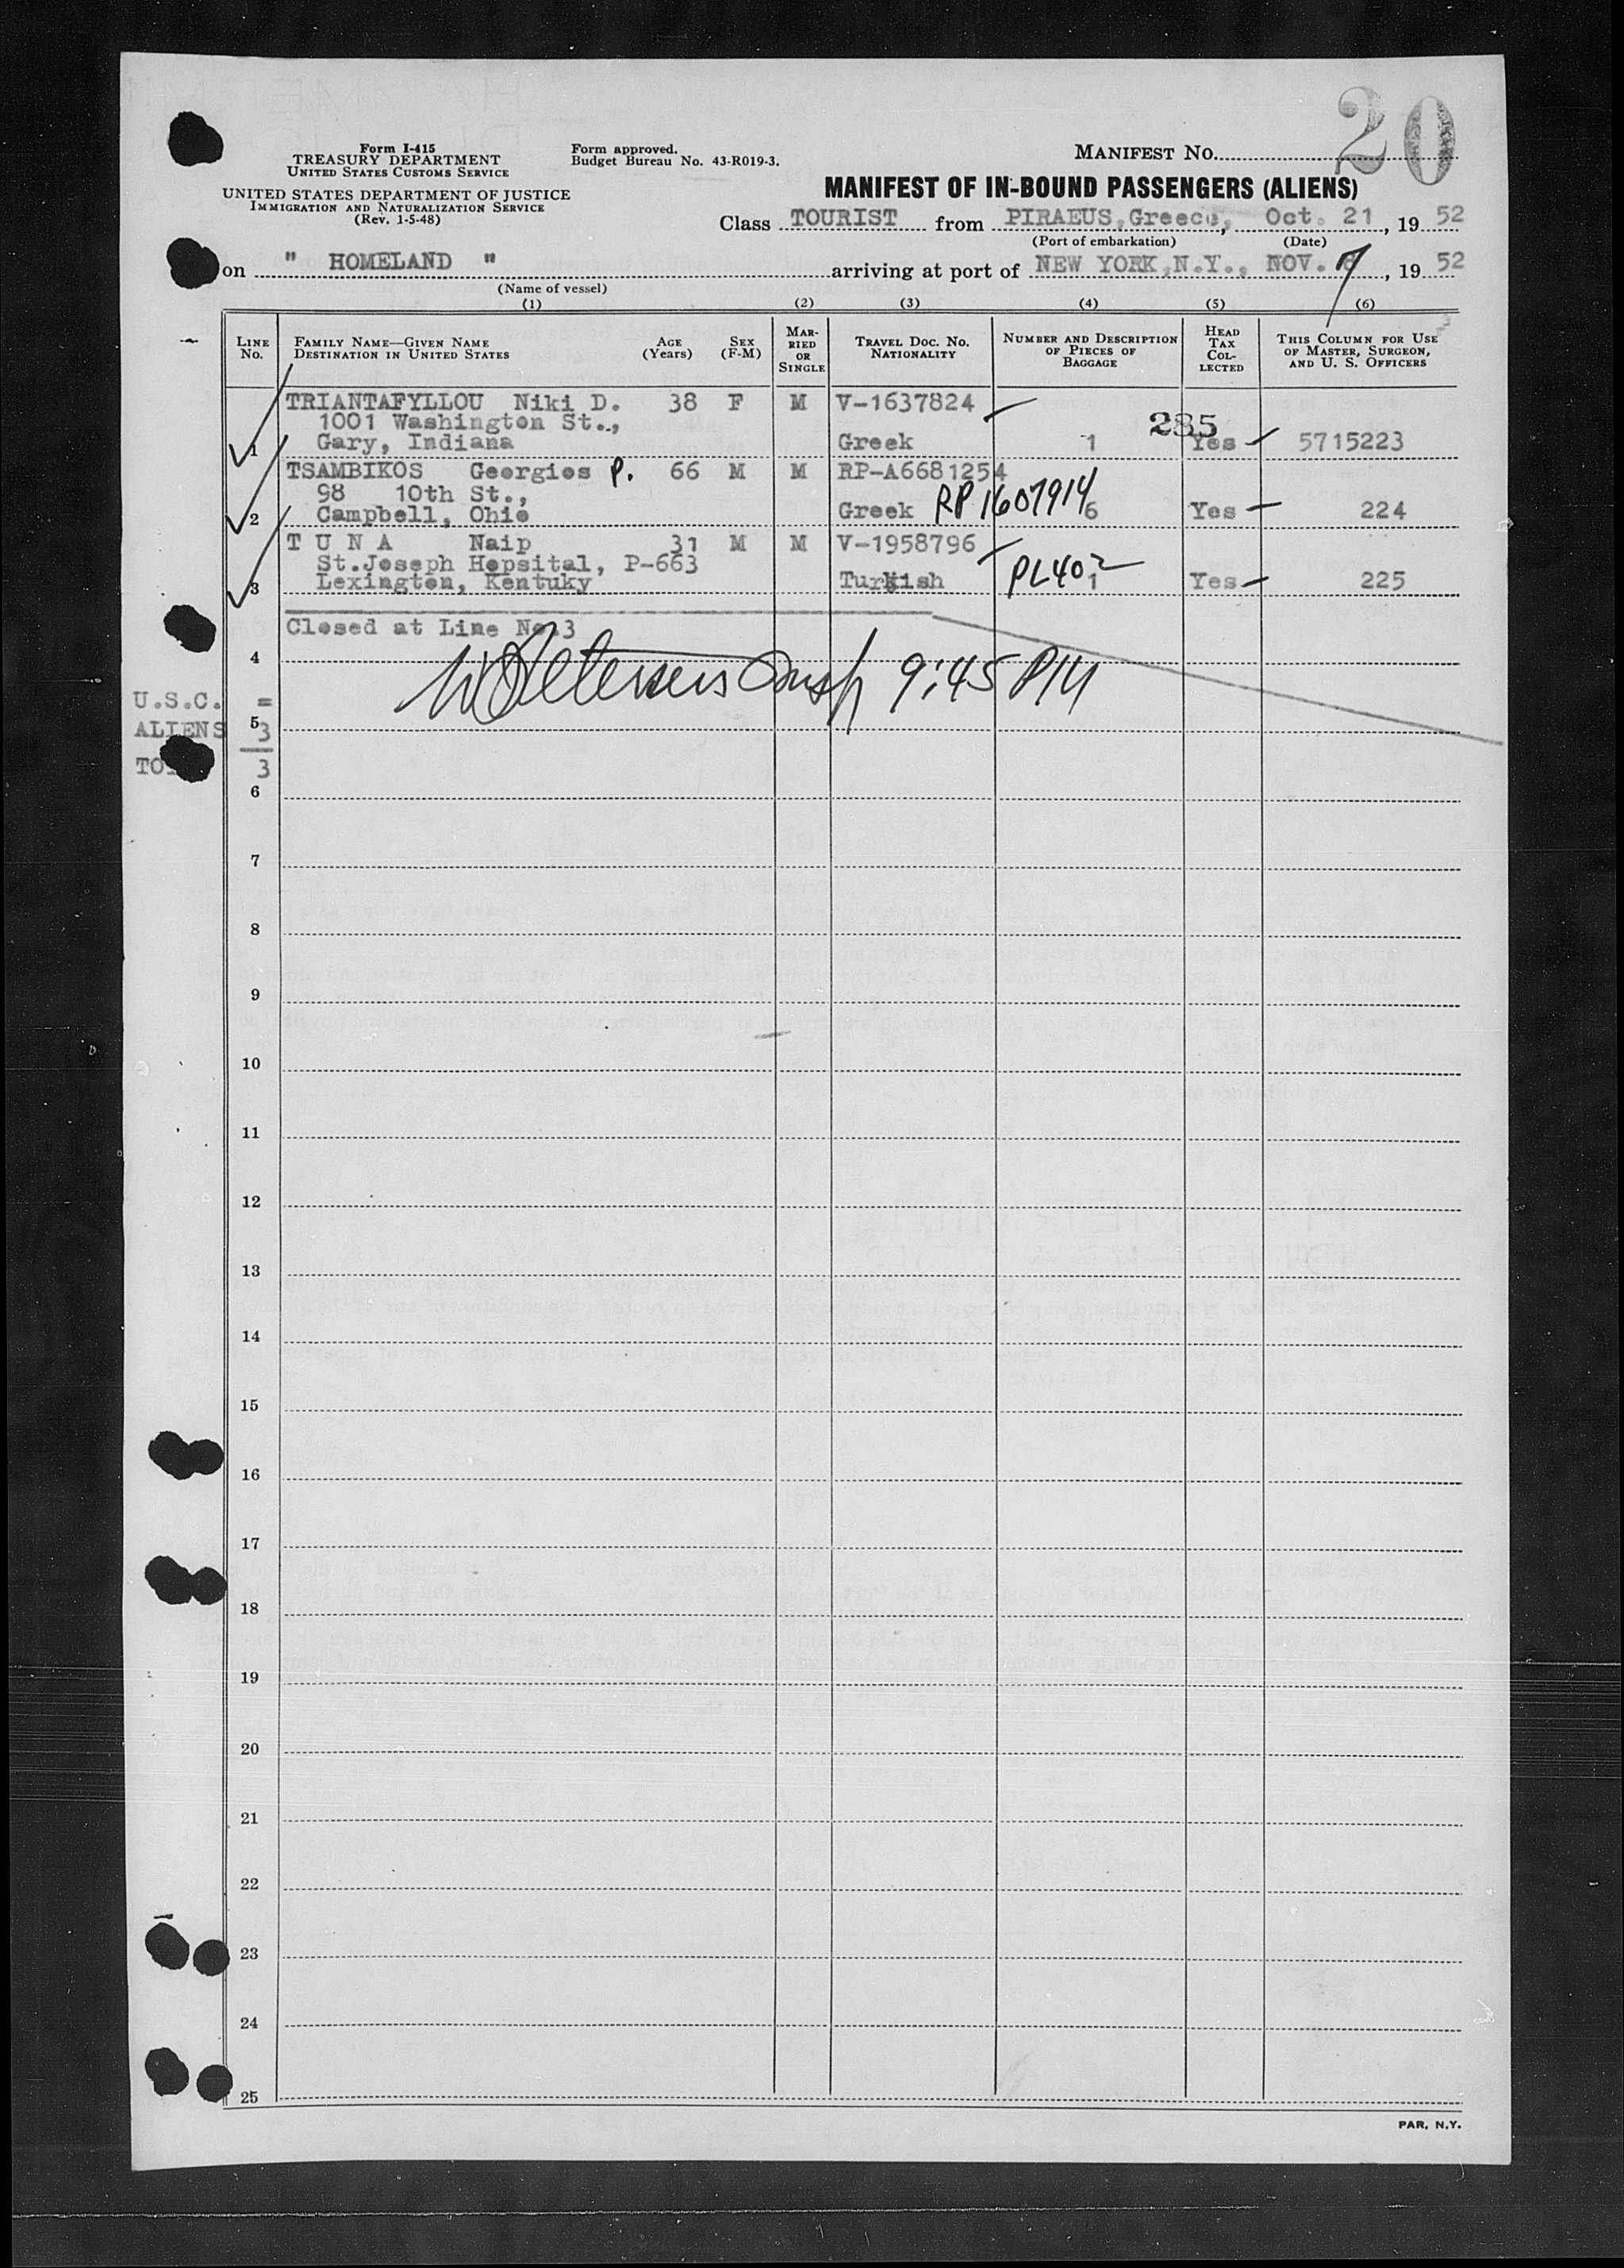 20
Form I-415
TREASURY DEPARTMENT
UNITED STATES CUSTOMS SERVICE
UNITED STATES DEPARTMENT OF JUSTICE
IMMIGRATION AND NATURALIZATION SERVICE
(Rev. 1-5-48)
Form approved.
Budget Bureau No. 43-R019-3.
MANIFEST NO.
MANIFEST OF IN-BOUND PASSENGERS (ALIENS)
Class TOURIST from PIRAEUS,Greece, Oct. 21, 19 52
(Port of embarkation) (Date)
on " HOMELAND " arriving at port of NEW YORK,N.Y., NOV. 7, 19 52
(Name of vessel)
(1) (2) (3) (4) (5) (6)
LINE No. FAMILY NAME—GIVEN NAME DESTINATION IN UNITED STATES AGE (Years) SEX (F-M) MARRIED OR SINGLE TRAVEL DOC. NO. NATIONALITY NUMBER AND DESCRIPTION OF PIECES OF BAGGAGE HEAD TAX COLLECTED THIS COLUMN FOR USE OF MASTER, SURGEON, AND U. S. OFFICERS
TRIANTAFYLLOU Niki D. 38 F M V-1637824
1001 Washington St., 285
1 Gary, Indiana Greek 1 Yes 5715223
TSAMBIKOS Georgios P. 66 M M RP-A6681254
98 10th St.,
2 Campbell, Ohio Greek RP 1607914 6 Yes 224
T U N A Naip 31 M M V-1958796
St.Joseph Hopsital, P-663
3 Lexington, Kentuky Turkish PL402 1 Yes 225
Closed at Line No.3
4
Insp 9:45 PM
U.S.C. =
5
ALIENS 3
3
6
7
8
9
10
11
12
13
14
15
16
17
18
19
20
21
22
23
24
25
PAR, N.Y.